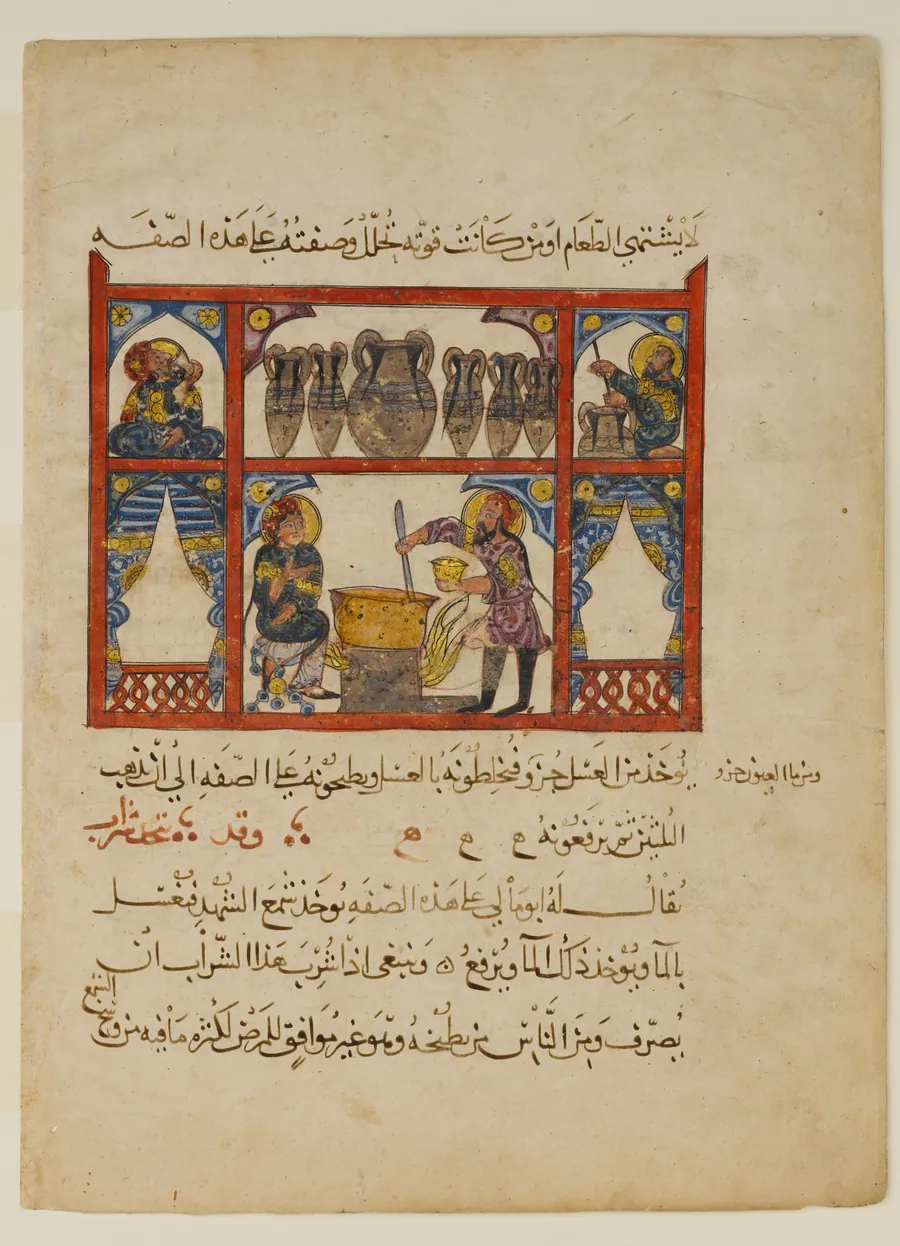 لَا يَشْتَهِي الطَّعَام اوَمَنْ كَانَتْ قوّته تُحَلَّلُ وَصفتُهُ عَلَى هَذه الصّفَه
يُوخَذ من العَسَل جُزو فَيخلِطُونَهُ بالعسَل ويطبخُونهُ عَلى الصّفَهِ الي انْ يذهب
ومن ما العيون جزو
الثلثين ثمّ يَرفعُونهُ ح ح ح وقد يتخذ شراب
يُقالُ لَهُ ابومَاْلي عَلى هَذه الصّفَهِ يُوخَذ شمَع الشهْدِ فيُغسَل
بالمآ ويُوْخذ ذَلك المآ ويُرْفعُ ه وَينبغى اذا شُرِبَ هَذا الشّرَاب انْ
يُصرّف وَمِنَ النَّاسِ من يطبُخهُ وهو غير مُوَافِق للمَرضْ لكثرَه مَا فيه من وسَخ
الشمع